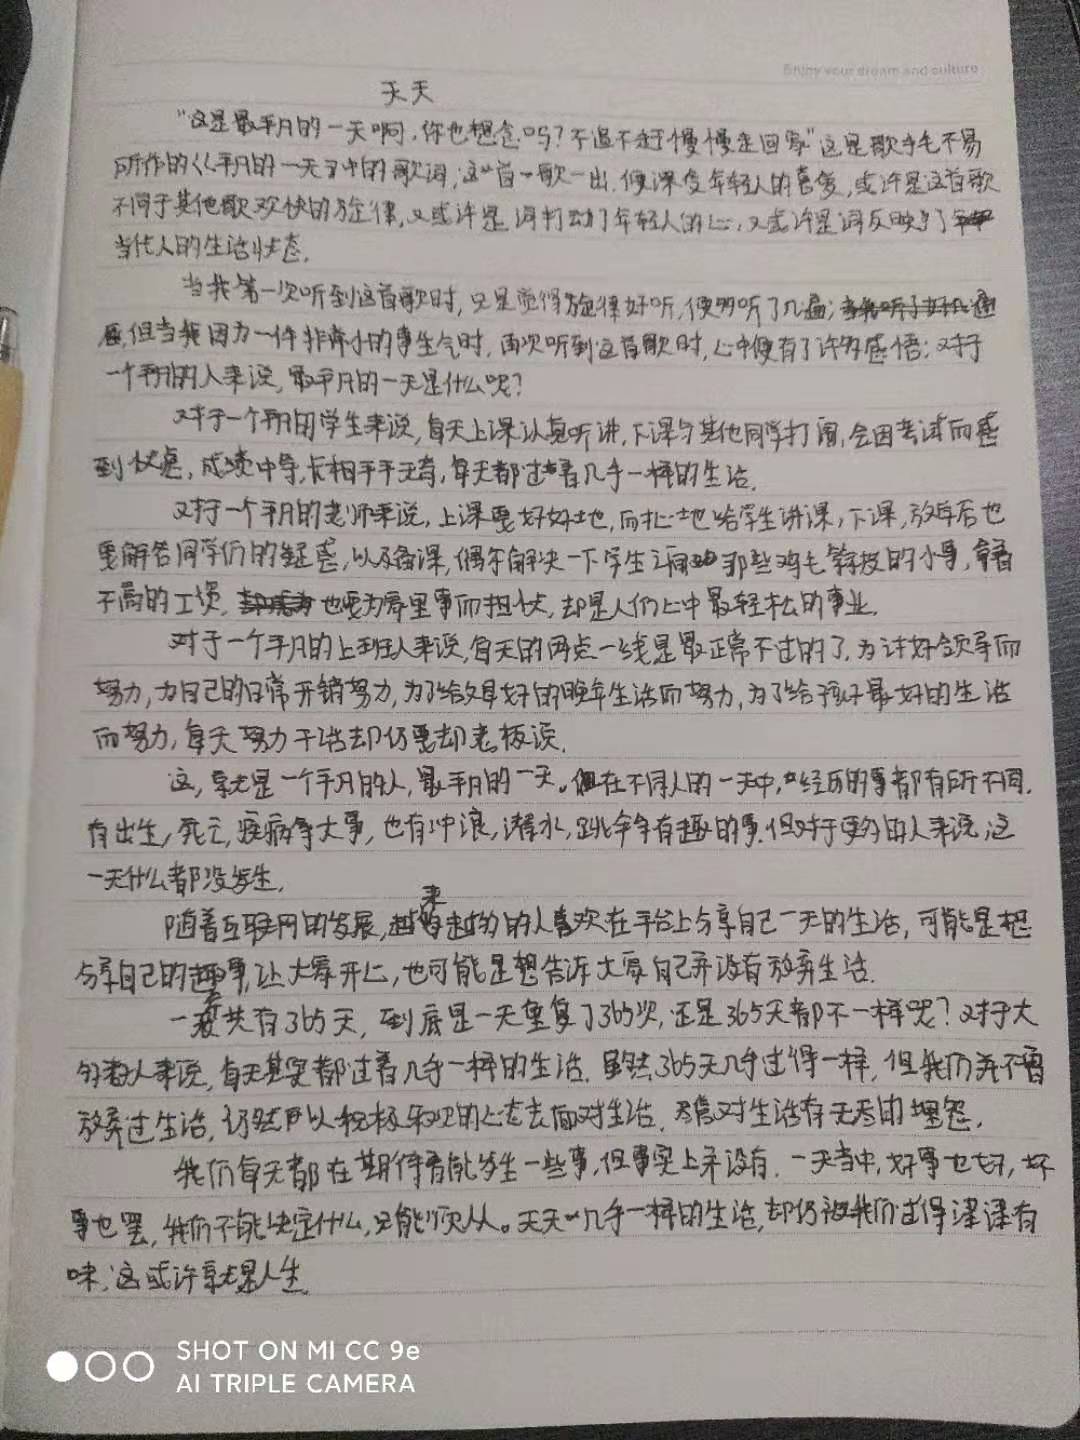 Enjoy your dream and culture
天天
"这是最平凡的一天啊，你也想念吗？不追不赶慢慢走回家"这是歌手毛不易
所作的《平凡的一天》中的歌词，这首歌一出，便深受年轻人的喜爱，或许是这首歌
不同于其他歌欢快的旋律，又或许是词打动了年轻人的心，又或许是词反映了
当代人的生活状态。
当我第一次听到这首歌时，只是觉得旋律好听，便多听了几遍；
但当我因为一件非常小的事生气时，再次听到这首歌时，心中便有了许多感悟：对于
一个平凡的人来说，最平凡的一天是什么呢？
对于一个平凡的学生来说，每天上课认真听讲，下课与其他同学打闹，会因考试而感
到忧虑，成绩中等，长相平平无奇，每天都过着几乎一样的生活。
对于一个平凡的老师来说，上课要好好地，而扎心地给学生讲课，下课，放学后也
要解答同学们的疑惑，以及备课，偶尔解决一下学生之间那些鸡毛蒜皮的小事，拿着
不高的工资，也要为家里事而担忧，却是人们心中最轻松的事业。
对于一个平凡的上班人来说，每天的两点一线是最正常不过的了，为讨好领导而
努力，为自己的日常开销努力，为了给父母好的晚年生活而努力，为了给孩子最好的生活
而努力，每天努力干活却仍要却老板说。
这，就是一个平凡的人，最平凡的一天。但在不同人的一天中，经历的事都有所不同，
有出生，死亡，疾病等大事，也有冲浪，潜水，跳伞等有趣的事，但对于更多的人来说，这
一天什么都没发生。
随着互联网的发展，越来越多的人喜欢在平台上分享自己一天的生活，可能是想
分享自己的趣事，让大家开心，也可能是想告诉大家自己并没有放弃生活。
一年共有365天，到底是一天重复了365次，还是365天都不一样呢？对于大
多数人来说，每天其实都过着几乎一样的生活，虽然365天几乎过得一样，但我们并不曾
放弃过生活，仍然以积极乐观的心态去面对生活，对生活有无尽的埋怨。
我们每天都在期待着能发生一些事，但事实上并没有，一天当中，好事也好，坏
事也罢，我们不能决定什么，只能顺从。天天几乎一样的生活，却仍被我们过得津津有
味，这或许就是人生。
SHOT ON MI CC 9e
AI TRIPLE CAMERA